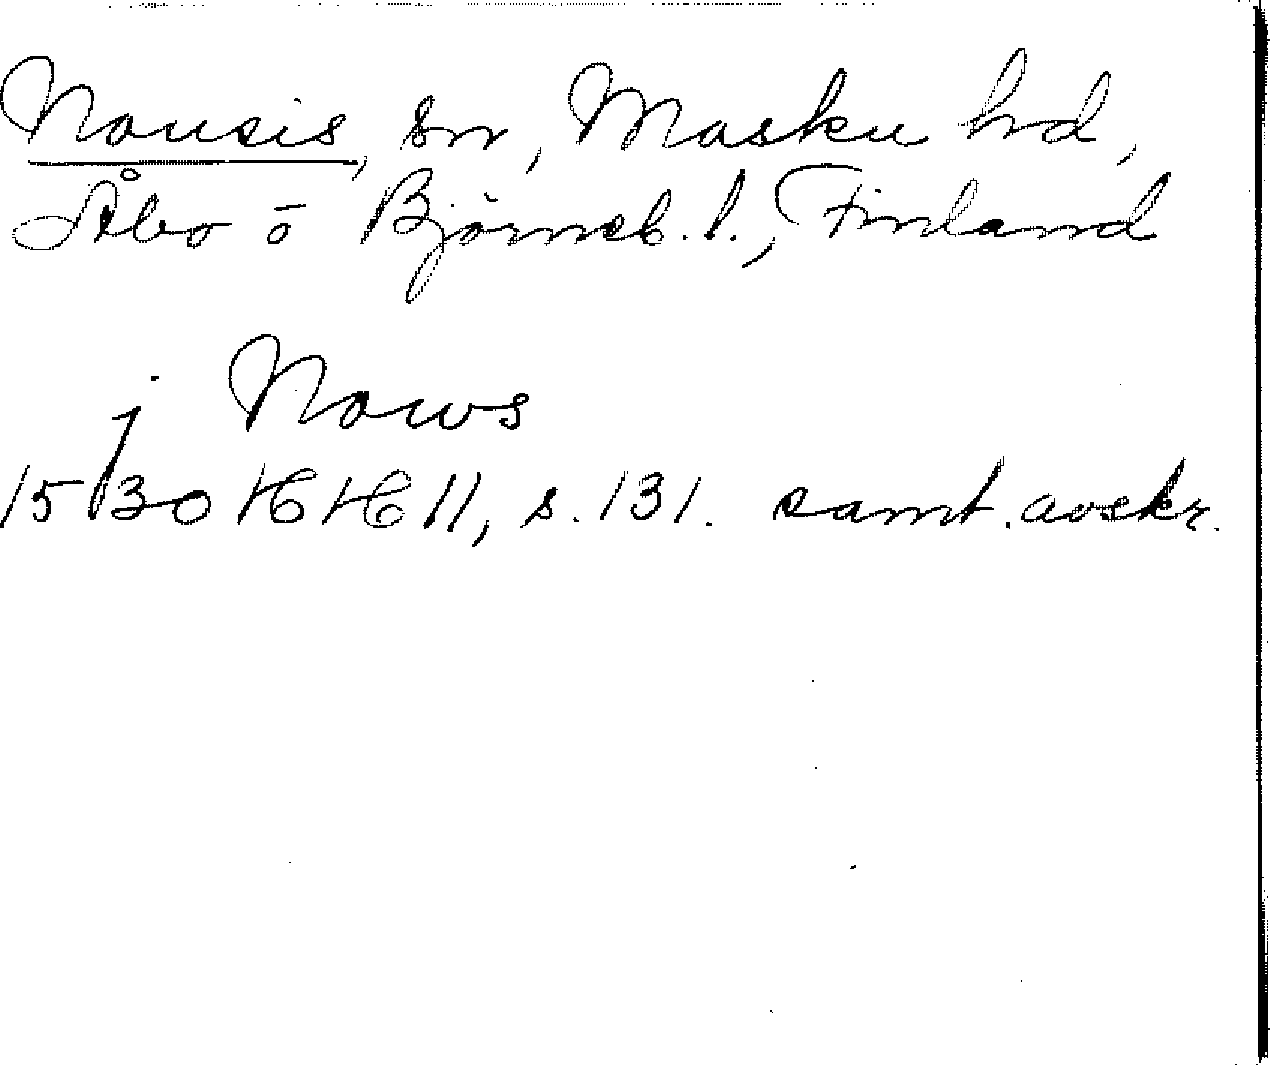 Nousis, sn, Masku hd,
Åbo o Björneb. l., Finland
j Nows
1530 HH 11, s. 131. samt. avskr.